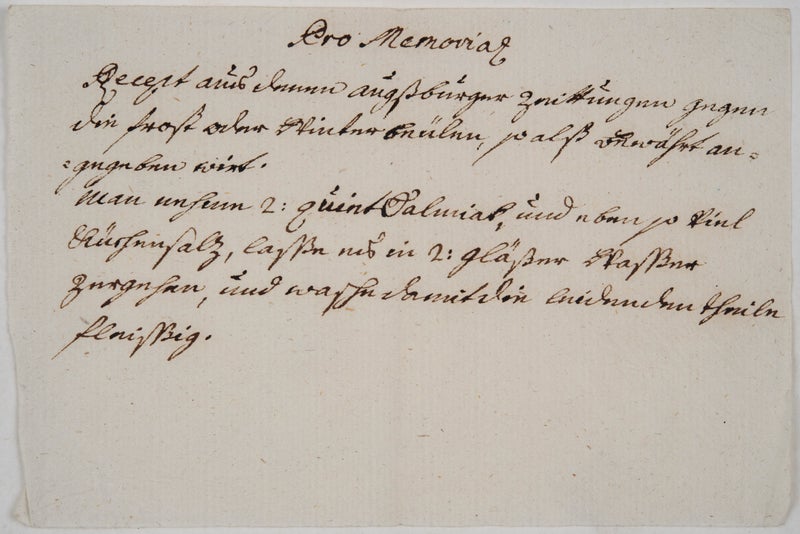 Pro Memoria
Recept aus denen augßbürger Zeittungen gegen
die frost oder Winter beülen, so alß bewährt an=
=gegeben wirt.
Man nehme 2: quint Salmiak, und eben so viel
Küchensalz, lasse es in 2: gläßer Wasser
zergehen, und wasche damit die leidenden theile
fleissig.